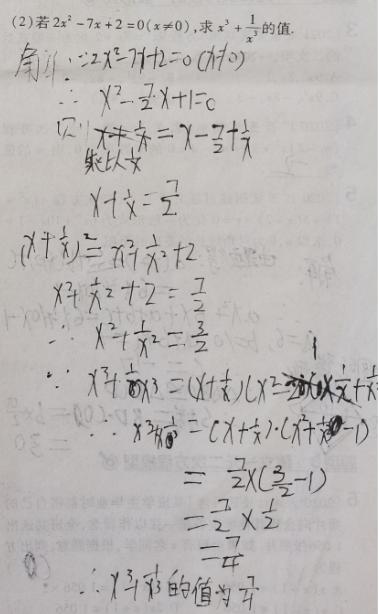 (2)若2x²-7x+2=0(x≠0),求x³+1/x³的值.
解:∵2x²-7x+2=0(x≠0)
∴x²-7/2x+1=0
则 = x-7/2+1/x
除以x
x+1/x=7/2
(x+1/x)²=x²+1/x²+2
x²+1/x²+2=7/2
∴x²+1/x²=3/2
∵x³+1/x³=(x+1/x)(x²-x·1/x+1/x²
∴x³+1/x³=(x+1/x)·(x²+1/x²-1)
=7/2×(3/2-1)
=7/2×1/2
=7/4
∴x³+1/x³的值为7/4